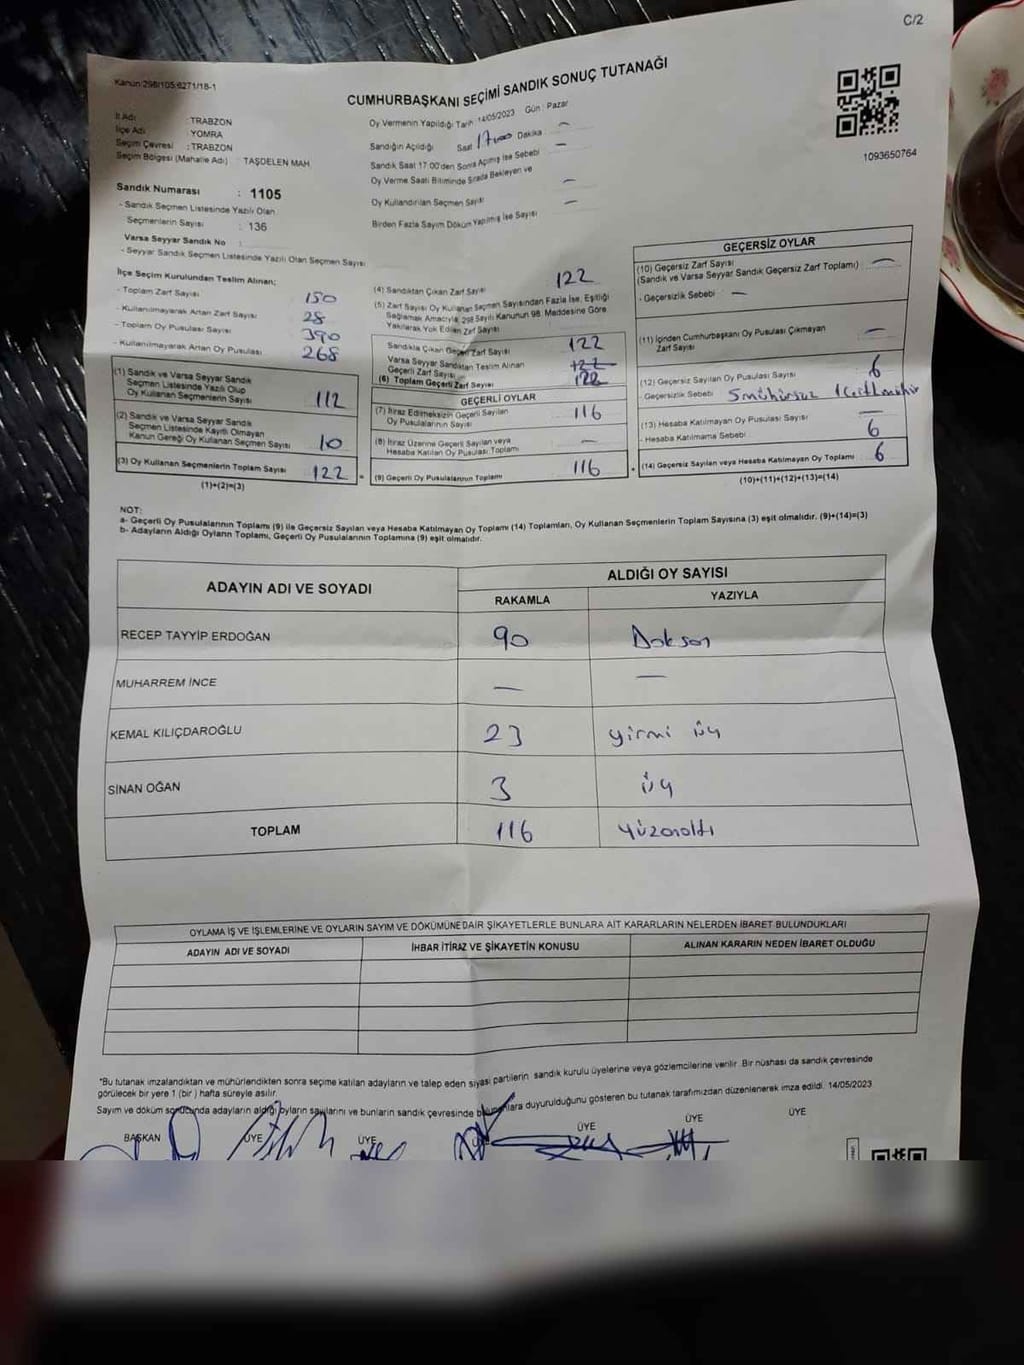 C/2
Kanun:298/105;6271/18-1
CUMHURBAŞKANI SEÇİMİ SANDIK SONUÇ TUTANAĞI
1093650764
İl Adı : TRABZON
İlçe Adı : YOMRA
Seçim Çevresi : TRABZON
Seçim Bölgesi (Mahalle Adı) : TAŞDELEN MAH
Oy Vermenin Yapıldığı Tarih 14/05/2023 Gün : Pazar
Sandığın Açıldığı Saat 17:00 Dakika : —
Sandık Saat 17:00'den Sonra Açılmış İse Sebebi —
Oy Verme Saati Bitiminde Sırada Bekleyen ve
Oy Kullandırılan Seçmen Sayısı —
Birden Fazla Sayım Döküm Yapılmış İse Sayısı —
Sandık Numarası : 1105
- Sandık Seçmen Listesinde Yazılı Olan
Seçmenlerin Sayısı : 136
Varsa Seyyar Sandık No :
- Seyyar Sandık Seçmen Listesinde Yazılı Olan Seçmen Sayısı
İlçe Seçim Kurulundan Teslim Alınan;
- Toplam Zarf Sayısı 150
- Kullanılmayarak Artan Zarf Sayısı 28
- Toplam Oy Pusulası Sayısı 390
- Kullanılmayarak Artan Oy Pusulası 268
(1) Sandık ve Varsa Seyyar Sandık
Seçmen Listesinde Yazılı Olup
Oy Kullanan Seçmenlerin Sayısı 112
(2) Sandık ve Varsa Seyyar Sandık
Seçmen Listesinde Kayıtlı Olmayan
Kanun Gereği Oy Kullanan Seçmen Sayısı 10
(3) Oy Kullanan Seçmenlerin Toplam Sayısı 122
(1)+(2)=(3)
(4) Sandıktan Çıkan Zarf Sayısı 122
(5) Zarf Sayısı Oy Kullanan Seçmen Sayısından Fazla İse, Eşitliği
Sağlamak Amacıyla, 298 Sayılı Kanunun 98. Maddesine Göre
Yakılarak Yok Edilen Zarf Sayısı
Sandıkta Çıkan Geçerli Zarf Sayısı 122
Varsa Seyyar Sandıktan Teslim Alınan
Geçerli Zarf Sayısı 122
(6) Toplam Geçerli Zarf Sayısı 122
GEÇERLİ OYLAR
(7) İtiraz Edilmeksizin Geçerli Sayılan
Oy Pusulalarının Sayısı 116
(8) İtiraz Üzerine Geçerli Sayılan veya
Hesaba Katılan Oy Pusulası Toplamı —
(9) Geçerli Oy Pusulalarının Toplamı 116
GEÇERSİZ OYLAR
(10) Geçersiz Zarf Sayısı
(Sandık ve Varsa Seyyar Sandık Geçersiz Zarf Toplamı) —
- Geçersizlik Sebebi —
(11) İçinden Cumhurbaşkanı Oy Pusulası Çıkmayan
Zarf Sayısı —
(12) Geçersiz Sayılan Oy Pusulası Sayısı 6
- Geçersizlik Sebebi 5 mühürsüz 1
(13) Hesaba Katılmayan Oy Pusulası Sayısı —
- Hesaba Katılmama Sebebi 6
(14) Geçersiz Sayılan veya Hesaba Katılmayan Oy Toplamı 6
(10)+(11)+(12)+(13)=(14)
NOT:
a- Geçerli Oy Pusulalarının Toplamı (9) ile Geçersiz Sayılan veya Hesaba Katılmayan Oy Toplamı (14) Toplamları, Oy Kullanan Seçmenlerin Toplam Sayısına (3) eşit olmalıdır. (9)+(14)=(3)
b- Adayların Aldığı Oyların Toplamı, Geçerli Oy Pusulalarının Toplamına (9) eşit olmalıdır.
ADAYIN ADI VE SOYADI ALDIĞI OY SAYISI
RAKAMLA YAZIYLA
RECEP TAYYİP ERDOĞAN 90 Doksan
MUHARREM İNCE — —
KEMAL KILIÇDAROĞLU 23 yirmi üç
SİNAN OĞAN 3 üç
TOPLAM 116 yüzonaltı
OYLAMA İŞ VE İŞLEMLERİNE VE OYLARIN SAYIM VE DÖKÜMÜNE DAİR ŞİKAYETLERLE BUNLARA AİT KARARLARIN NELERDEN İBARET BULUNDUKLARI
ADAYIN ADI VE SOYADI İHBAR İTİRAZ VE ŞİKAYETİN KONUSU ALINAN KARARIN NEDEN İBARET OLDUĞU
*Bu tutanak imzalandıktan ve mühürlendikten sonra seçime katılan adayların ve talep eden siyasi partilerin sandık kurulu üyelerine veya gözlemcilerine verilir. Bir nüshası da sandık çevresinde
görülecek bir yere 1 (bir ) hafta süreyle asılır.
Sayım ve döküm sonucunda adayların aldığı oyların sayılarını ve bunların sandık çevresinde duyurulduğunu gösteren bu tutanak tarafımızdan düzenlenerek imza edildi. 14/05/2023
BAŞKAN ÜYE ÜYE ÜYE ÜYE ÜYE